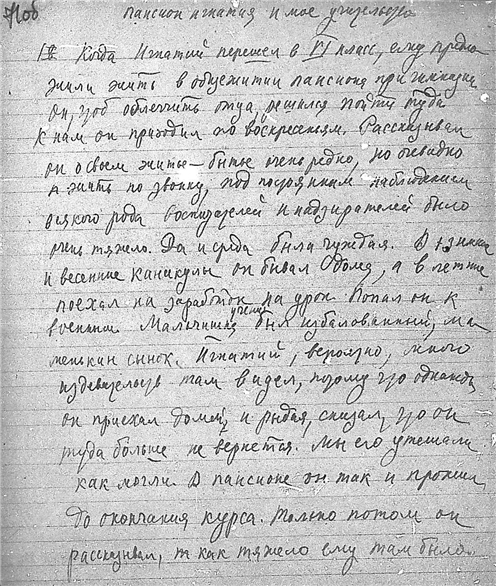 Пансион Игнатия и мое учительство
Когда Игнатий перешел в VI класс, ему предло
жили жить в общежитии пансиона при гимназии
Он, чтоб облегчить отца, решился пойти туда
К нам он приходил по воскресеньям. Рассказывал
он о своем житье-бытье очень редко, но очевидно
жить по звонку, под постоянным наблюдением
всякого рода воспитателей и надзирателей было
очень тяжело. Да и среда была чуждая. В зимние
и весенние каникулы он бывал дома, а в летние
поехал на заработок на урок. Попал он к
военным. Мальчишка ученик был избалованный, ма
менькин сынок. Игнатий, вероятно, много
издевательств там видел, потому что однажды
он приехал домой и рыдая, сказал, что он
туда больше не вернется. Мы его утешали
как могли. В пансионе он так и прожил
до окончания курса. Только потом он
рассказывал, как тяжело ему там было.